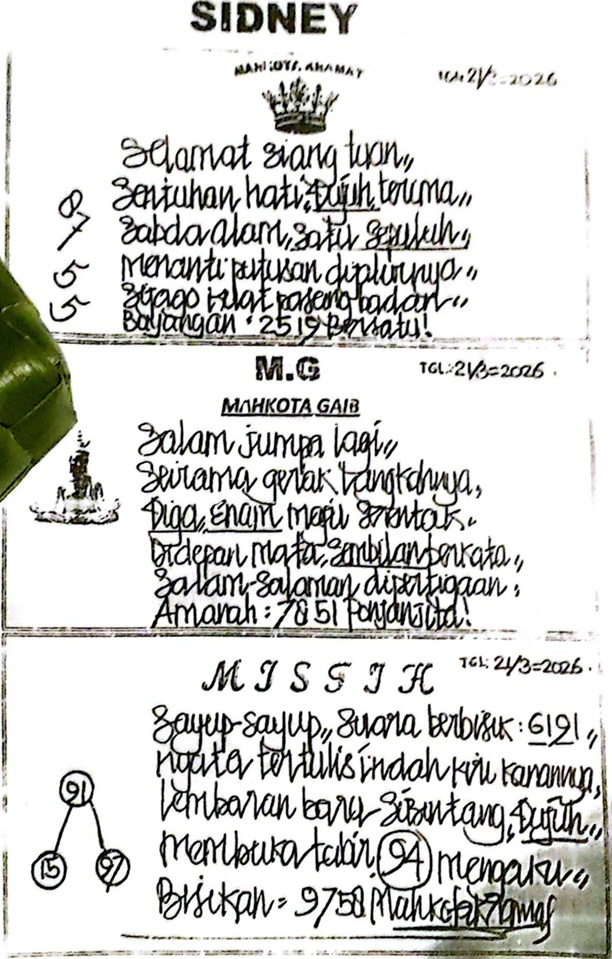 SIDNEY
MAHKOTA KRAMAT
TGL 21/3=2026
Selamat siang tuan,,
Sentuhan hati, Tujuh terima,,
Sabda alam, Satu Sepuluh,,
Menanti putusan dipilihnya,,
Sijago silat pasang badan,,
Bayangan : 2519 Bersatu!
8
7
5
5
M.G
TGL:21/3=2026.
MAHKOTA GAIB
Salam jumpa lagi,,
Seirama gerak langkahnya,
Tiga,, Enam maju serentak.
Didepan mata, Sembilan berkata,,
Salam-salaman dipertigaan,
Amanah : 7851
MISTIK
TGL: 21/3=2026.
Sayup-sayup,, Suara berbisik : 6191,,
nyata tertulis indah kiri kanannya,
Lembaran baru Sibintang, Tujuh,,
membuka tabir, 94 mengaku,,
Bisikan = 9758
91
15 97